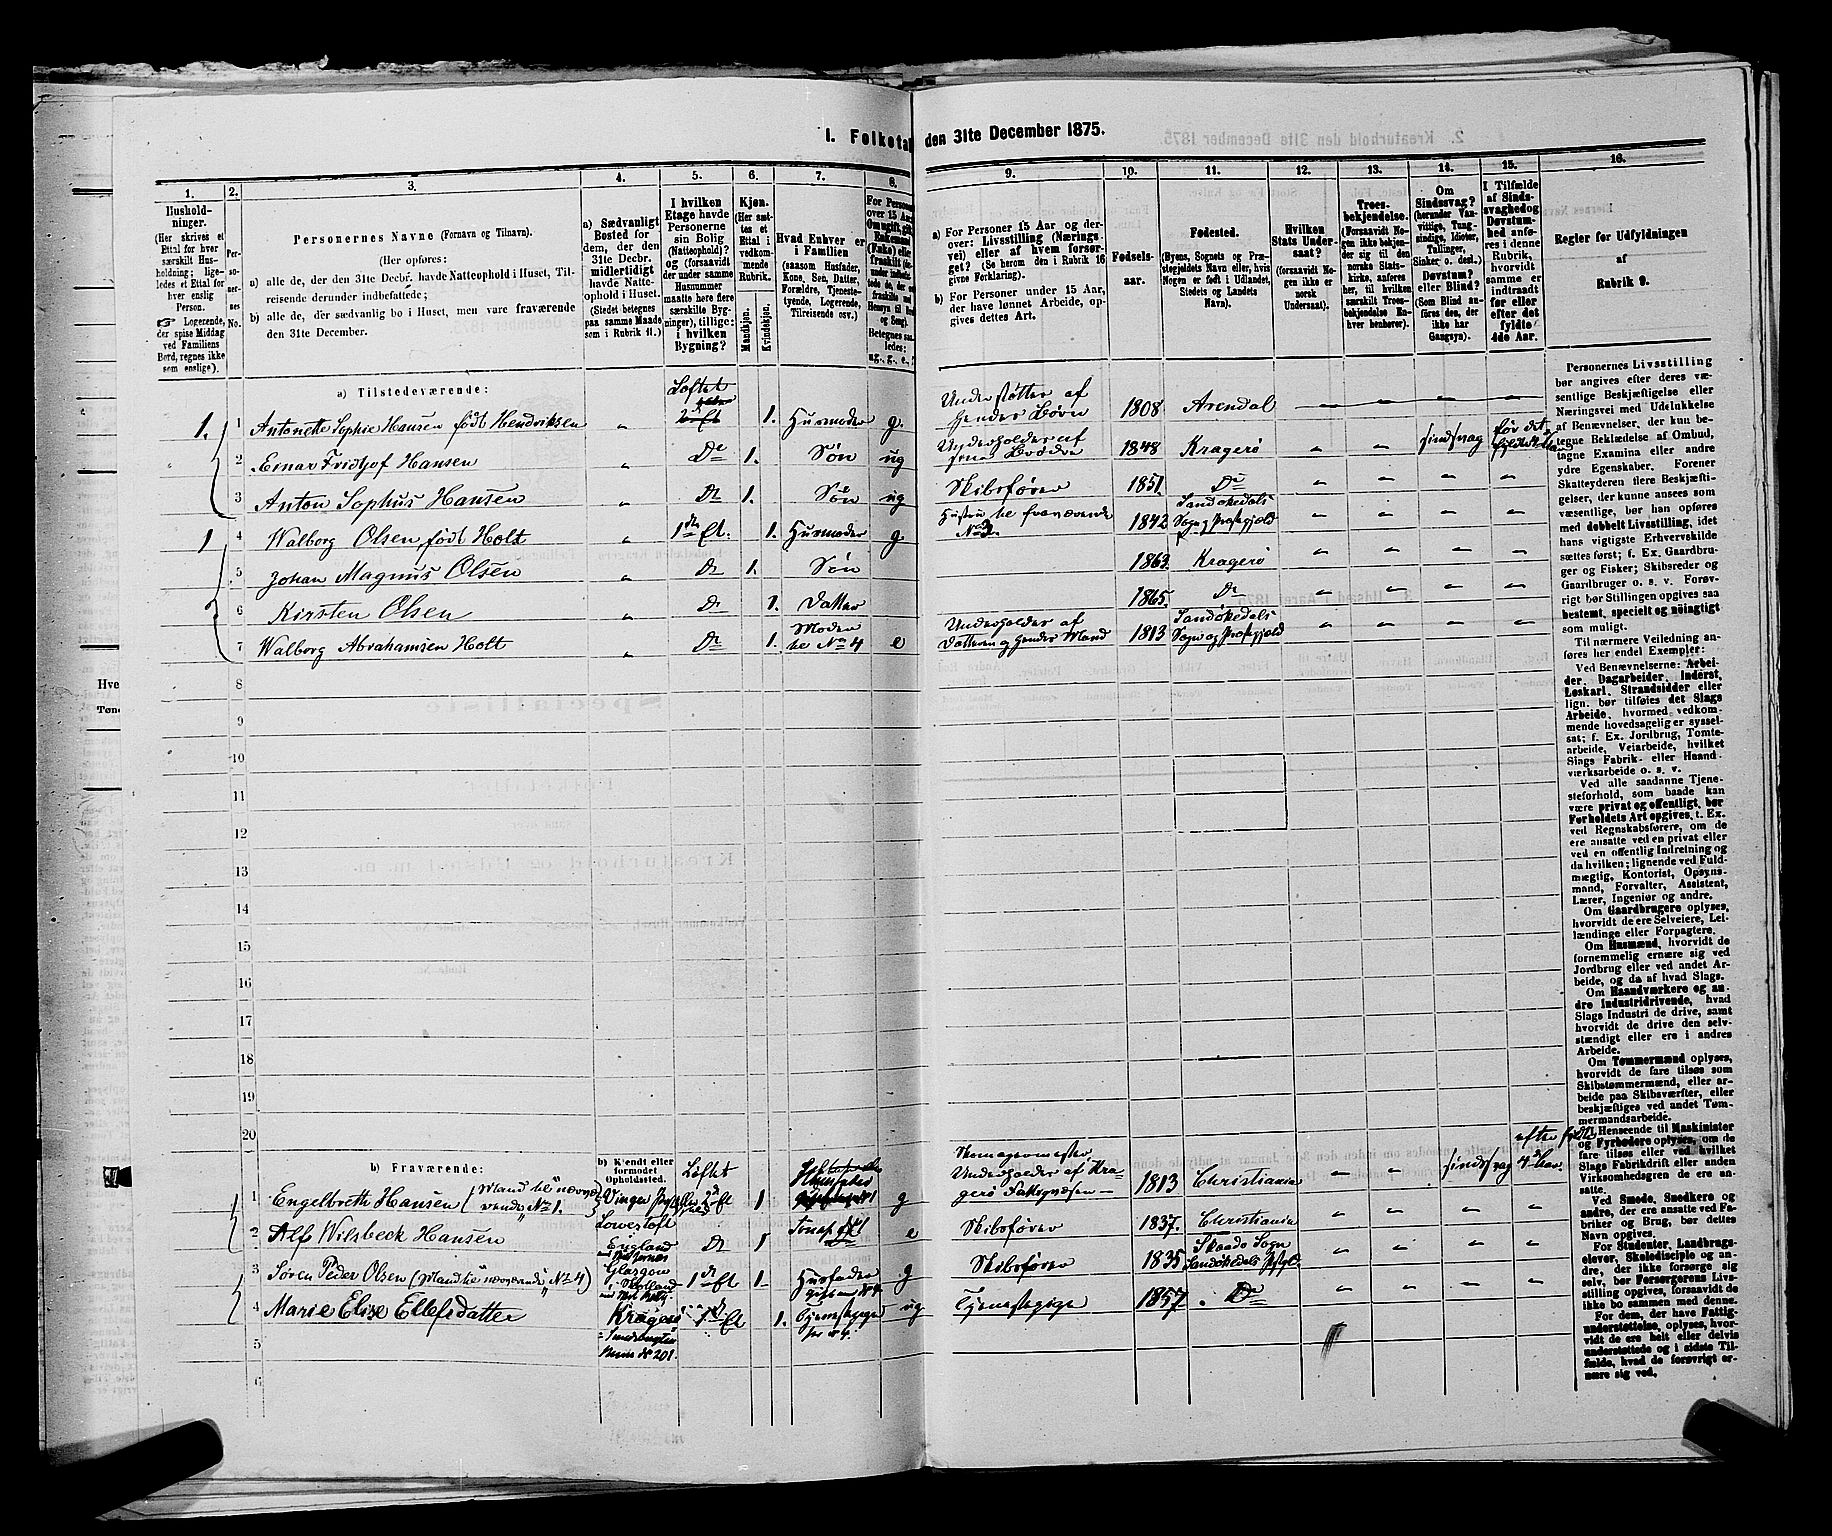 I. Folketal den 31te December 1875.
2. Kreaturhold den 31te December 1875.
1.
2.
3.
4.
5.
6.
7.
8.
9.
10.
11.
12.
13.
14.
15.
16.
Husholdninger.
(Her skrives et
Ettal for hver
særskilt Husholdning;
ligeledes et Ettal for
hver enslig
Person.
☞ Logerende,
der spise Middag
ved Familiens
Bord, regnes ikke
som enslige).
Personernes No.
Personernes Navne (Fornavn og Tilnavn).
(Her opføres:
a) alle de, der den 31te Decbr. havde Natteophold i Huset, Tilreisende derunder indbefattede;
b) alle de, der sædvanlig bo i Huset, men vare fraværende
den 31te December.
a) Sædvanligt
Bosted for
dem, der den
31te Decbr.
midlertidigt
havde Natteophold i Huset.
(Stedet betegnes
paa samme Maade
som i Rubrik 11.)
I hvilken
Etage havde
Personerne
sin Bolig
(Natteophold)?
og (forsaavidt
der under samme
Husnummer
maatte høre flere
særskilte Bygninger), tillige:
i hvilken
Bygning?
Kjøn.
(Her sættes et
Ettal i
vedkommende
Rubrik.
Mandkjøn.
Kvindekjøn.
Hvad Enhver er
i Familien
(saasom Husfader,
Kone, Søn, Datter,
Forældre, Tjenestetyende, Logerende,
Tilreisende osv.)
For Personer
over 15 Aar:
a) For Personer 15 Aar og derover: Livsstilling (Næringsvei) eller af hvem forsørget? (Se herom den i Rubrik 16
givne Forklaring).
b) For Personer under 15 Aar,
der have lønnet Arbeide, opgives dettes Art.
Fødselsaar.
Fødested.
(Byens, Sognets og Præstegjeldets Navn, eller, hvis
Nogen er født i Udlandet,
Stedets og Landets
Navn).
Hvilken
Stats Undersaat?
(forsaavidt Nogen ikke er
norsk
Undersaat).
Troesbekjendelse.
(Forsaavidt Nogen ikke bekjender sig til den
norske Statskirke, anføres
her, til hvilket
særskilt Troesbekjendelse Enhver henhører).
Om
Sindssvag?
(herunder Vanvittige, Tungsindige, Idioter,
Tullinger,
Sinker o. desl.)
Døvstum?
eller Blind?
(Som Blind anføres den, der
ikke har
Gangsyn).
I Tilfælde
af Sindssvaghed og
Døvstumhed anføres i denne
Rubrik,
hvorvidt
samme er
indtraadt
før eller
efter det
fyldte
4de Aar.
Regler for Udfyldningen
af
Rubrik 9.
a) Tilstedeværende:
1. 1 Antonette Sophie Hansen født Hendriksen „ Loftet 1. Husmoder g Understøttes af hendes Børn 1808 Arendal – – – –
2 Einar Fridtjof Hansen „ Do 1. Søn ug Underholdes af 1848 Kragerø – – sindssvag før det
3 Anton Sophus Hansen „ Do 1. Søn ug Skibsfører 1851. Do
1 4 Walborg Olsen, født Holt „ 1ste Et. 1. Husmoder g Hustru til fraværende No 3. 1842 Sandøkedals Sogn og Præstegjæld
5 Johan Magnus Olsen „ Do 1. Søn 1863. Kragerø
6 Kirsten Olsen „ Do 1. Datter 1865. Do
7 Walborg Abrahamsen Holt „ Do 1. Moder til No 4 e Underholdes af Datteren og hendes Mand 1813 Sandøkedals Sogn og Præstegjæld
8
9
10
11
12
13
14
15
16
17
18
19
20
b) Fraværende:
b) Kjendt eller
formodet
Opholdssted.
1 Engelbrette Hansen (Mand til nævnværende No 1. Loftet 1 g Skomagermester Underholdes af Kragerø Fattigvæsen 1813 Christiania – – sindssvag efter fyldte 4de Aar
2 Alf Wilsbeck Hansen Lowestoft England Do 1 e Skibsfører 1837. Christiania
3 Søren Peder Olsen (Mand til nævnværende No 4) Glasgow Skotland 1ste Et 1. Husfader g Skibsfører 1835 Skaadø Sogn Sandøkedals Præstgj.
4 Marie Elise Ellefsdatter Kragerø 1ste Et 1. ug Tjenestepige 1857. Do
5
6
Personernes Livsstilling
bør angives efter deres væsentlige Beskjæftigelse eller
Næringsvei med Udelukkelse
af Benævnelser, der kun betegne Beklædelse af Ombud,
tagne Examina eller andre
ydre Egenskaber. Forener
Skatteyderen flere Beskjæftigelser, der kunne ansees som
væsentlige, bør han opføres
med dobbelt Livsstilling, idet
hans vigtigste Erhvervskilde
sættes først; f. Ex. Gaardbruger og Fisker; Skibsreder og
Gaardbruger o. s. v. Forøvrigt bør Stillingen opgives saa
bestemt, specielt og nøiagtigt
som muligt.
Til nærmere Veiledning anføres her endel Exempler:
Ved Benævnelserne: Arbeider, Dagarbeider, Inderst,
Løskarl, Strandsidder eller
lign. bør tilføies det Slags
Arbeide, hvormed vedkommende hovedsagelig er sysselsat; f. Ex. Jordbrug, Tomtearbeide, Veiarbeide, hvilket
Slags Fabrik- eller Haandværksarbeide o. s. v.
Ved alle saadanne Tjenesteforhold, som baade kan
være privat og offentligt, bør
Forholdets Art opgives, t. Ex.
ved Regnskabsførere, om de
ere ansatte ved en privat eller
ved en offentlig Indretning og
da hvilken; lignende ved Fuldmægtig, Kontorist, Opsynsmand, Forvalter, Assistent,
Lærer, Ingeniør og andre.
Om Gaardbrugere oplyses,
hvorvidt de ere Selveiere, Leilændinge eller Forpagtere.
Om Husmænd, hvorvidt de
fornemmelig ernære sig ved
Jordbrug eller ved andet Arbeide, og da af hvad Slags.
Om Haandværkere og andre Industridrivende, hvad
Slags Industri de drive, samt
hvorvidt de drive den selvstændigt eller ere i andres
Arbeide.
Om Tømmermænd oplyses,
hvorvidt de fare tilsøs som
Skibstømmermænd, eller arbeide paa Skibsværfter, eller
beskjæftiges ved andet Tømmermandsarbeide.
I Henseende til Maskinister
og Fyrbødere oplyses, om de
fare tilsøs eller ved hvilket
Slags Fabrikdrift eller anden
Virksomhedsgren de ere ansatte.
Ved Smede, Snedkere og
andre, der ere ansatte ved Fabriker og Brug, bør dettes
Navn opgives.
For Studenter, Landbrugselever, Skoledisciple og andre, der ikke forsørge sig
selv, bør Forsørgerens Livsstilling opgives, forsaavidt de
ikke bo sammen med denne.
For dem, der have Fattigunderstøttelse, oplyses, hvorvidt de ere helt eller delvis
understøttede og i sidste Tilfælde, hvad de forøvrigt ernære sig ved.